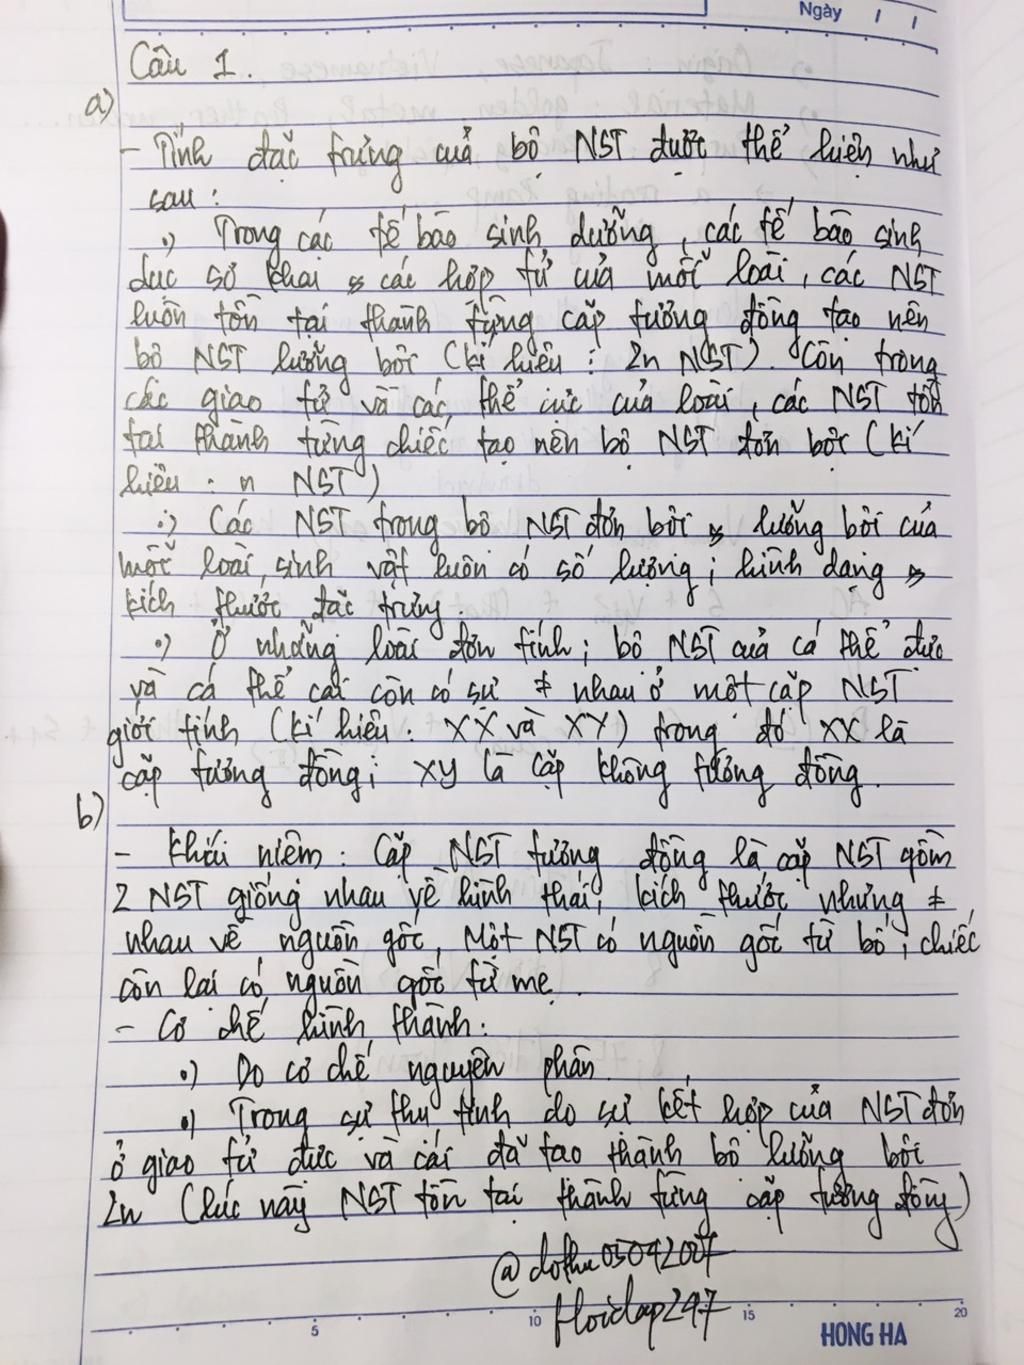 Ngày / /
Câu 1.
a)
- Tính đặc trưng của bộ NST được thể hiện như
sau:
•) Trong các tế bào sinh dưỡng, các tế bào sinh
dục sơ khai & các hợp tử của mỗi loài, các NST
luôn tồn tại thành từng cặp tương đồng tạo nên
bộ NST lưỡng bội (kí hiệu: 2n NST). Còn trong
các giao tử và các thể cực của loài, các NST tồn
tại thành từng chiếc tạo nên bộ NST đơn bội (kí
hiệu: n NST)
•) Các NST trong bộ NST đơn bội & lưỡng bội của
mỗi loài, sinh vật luôn có số lượng; hình dạng &
kích thước đặc trưng.
•) Ở những loài đơn tính; bộ NST của cá thể đực
và cá thể cái còn có sự ≠ nhau ở một cặp NST
giới tính (kí hiệu: XX và XY) trong đó XX là
cặp tương đồng; XY là cặp không tương đồng.
b)
- Khái niệm: Cặp NST tương đồng là cặp NST gồm
2 NST giống nhau về hình thái; kích thước nhưng ≠
nhau về nguồn gốc. Một NST có nguồn gốc từ bố; chiếc
còn lại có nguồn gốc từ mẹ.
- Cơ chế hình thành:
•) Do cơ chế nguyên phân.
•) Trong sự thụ tinh do sự kết hợp của NST đơn
ở giao tử đực và cái đã tạo thành bộ lưỡng bội
2n (lúc này NST tồn tại thành từng cặp tương đồng)
@dothu05042007
5 10 15 20
HONG HA